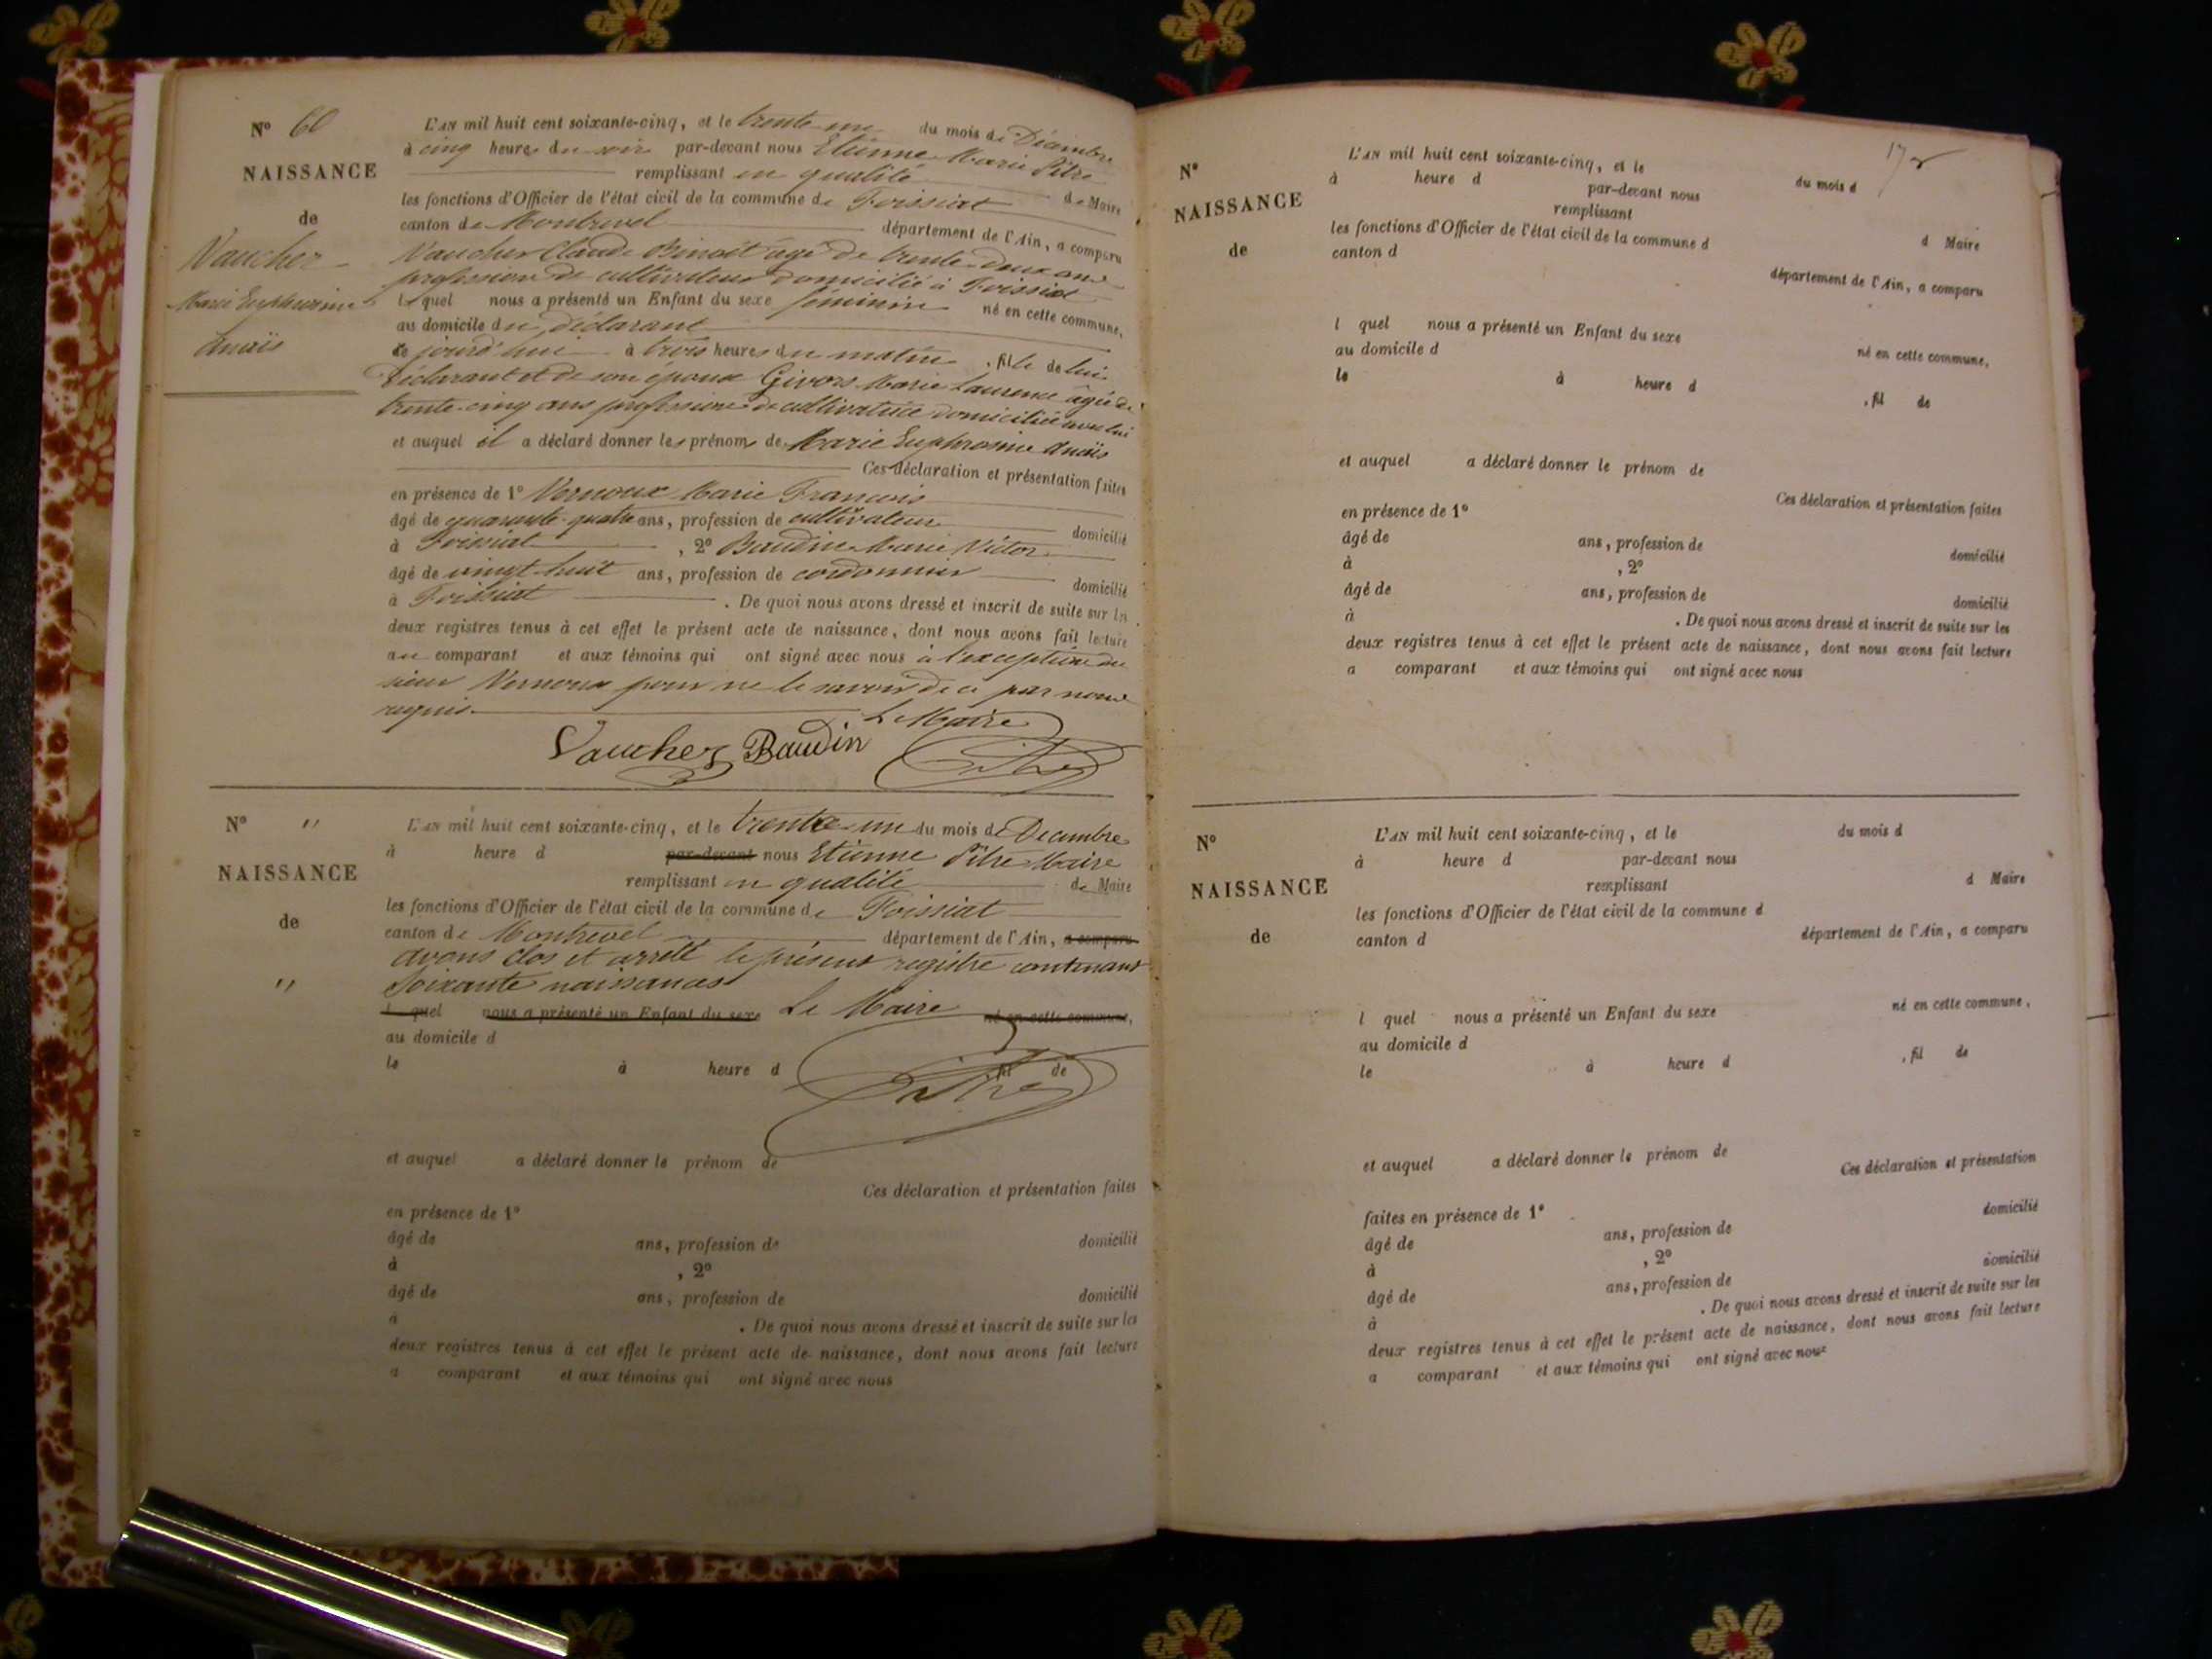 N° 60
NAISSANCE
de
Vaucher
Marie Euphrosine
Anaïs
L'AN mil huit cent soixante-cinq, et le trente-un du mois de Décembre
à cinq heures du soir par-devant nous Etienne Marie Pitre
remplissant en qualité de Maire
les fonctions d'Officier de l'état civil de la commune de Foissiat
canton de Montrevel département de l'Ain, a comparu
Vaucher Claude Benoit âgé de trente-deux ans
profession de cultivateur domicilié à Foissiat
lequel nous a présenté un Enfant du sexe féminin né en cette commune,
au domicile du déclarant
ce jourd'hui à trois heures du matin, fille de lui
déclarant et de son épouse Givors Marie Laurence âgée de
trente-cinq ans profession de cultivatrice domiciliée avec lui
et auquel il a déclaré donner les prénoms de Marie Euphrosine Anaïs
Ces déclaration et présentation faites
en présence de 1° Vernoux Marie François
âgé de quarante-quatre ans, profession de cultivateur domicilié
à Foissiat, 2° Baudin Marie Victor
âgé de vingt-huit ans, profession de cordonnier domicilié
à Foissiat. De quoi nous avons dressé et inscrit de suite sur les
deux registres tenus à cet effet le présent acte de naissance, dont nous avons fait lecture
au comparant et aux témoins qui ont signé avec nous à l'exception du
sieur Vernoux pour ne le savoir de ce par nous
requis. Le Maire
Vaucher Baudin Pitre
N° "
NAISSANCE
de
"
L'AN mil huit cent soixante-cinq, et le trente-un du mois de Decembre
à heure d par-devant nous Etienne Pitre Maire
remplissant en qualité de Maire
les fonctions d'Officier de l'état civil de la commune de Foissiat
canton de Montrevel département de l'Ain, a comparu
avons clos et arrêté le présent registre contenant
Soixante naissances
l quel nous a présenté un Enfant du sexe Le Maire né en cette commune,
au domicile d
le à heure d , fil de
Pitre
et auquel a déclaré donner le prénom de
Ces déclaration et présentation faites
en présence de 1°
âgé de ans, profession de domicilié
à , 2°
âgé de ans, profession de domicilié
à . De quoi nous avons dressé et inscrit de suite sur les
deux registres tenus à cet effet le présent acte de naissance, dont nous avons fait lecture
a comparant et aux témoins qui ont signé avec nous
17
N°
NAISSANCE
de
L'AN mil huit cent soixante-cinq, et le du mois d
à heure d par-devant nous
remplissant d Maire
les fonctions d'Officier de l'état civil de la commune d
canton d département de l'Ain, a comparu
l quel nous a présenté un Enfant du sexe né en cette commune,
au domicile d
le à heure d , fil de
et auquel a déclaré donner le prénom de
Ces déclaration et présentation faites
en présence de 1°
âgé de ans, profession de domicilié
à , 2°
âgé de ans, profession de domicilié
à . De quoi nous avons dressé et inscrit de suite sur les
deux registres tenus à cet effet le présent acte de naissance, dont nous avons fait lecture
a comparant et aux témoins qui ont signé avec nous
N°
NAISSANCE
de
L'AN mil huit cent soixante-cinq, et le du mois d
à heure d par-devant nous
remplissant d Maire
les fonctions d'Officier de l'état civil de la commune d
canton d département de l'Ain, a comparu
l quel nous a présenté un Enfant du sexe né en cette commune,
au domicile d
le à heure d , fil de
et auquel a déclaré donner le prénom de
Ces déclaration et présentation
faites en présence de 1°
âgé de ans, profession de domicilié
à , 2°
âgé de ans, profession de domicilié
à . De quoi nous avons dressé et inscrit de suite sur les
deux registres tenus à cet effet le présent acte de naissance, dont nous avons fait lecture
a comparant et aux témoins qui ont signé avec nous